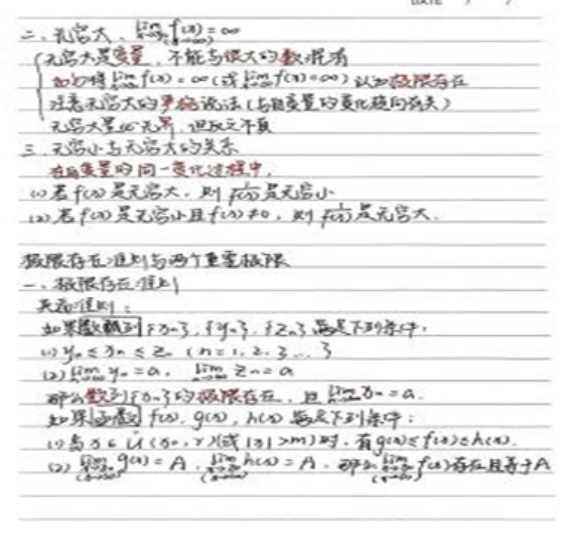 DATE
二、无穷大、lim f(x)=∞ (x→x₀) (x→∞)
无穷大是变量,不能与很大的数混淆
切勿将 lim f(x)=∞(或 lim f(x)=∞)认为极限存在
注意无穷大的严格说法(与自变量的变化趋向有关)
无穷大量必无界,但反之不真
三、无穷小与无穷大的关系
在自变量的同一变化过程中,
(1)若f(x)是无穷大,则 1/f(x) 是无穷小
(2)若f(x)是无穷小且f(x)≠0,则 1/f(x) 是无穷大.
极限存在准则与两个重要极限
一、极限存在准则
夹逼准则:
如果数列{xn},{yn},{zn}满足下列条件:
(1) yn≤xn≤zn (n=1,2,3…)
(2) lim yn=a, lim zn=a
那么数列{xn}的极限存在,且 lim xn=a.
如果函数f(x),g(x),h(x)满足下列条件:
(1)当x∈U(x₀,r)(或|x|>M)时,有g(x)≤f(x)≤h(x).
(2) lim g(x)=A, lim h(x)=A. 那么 lim f(x)存在且等于A